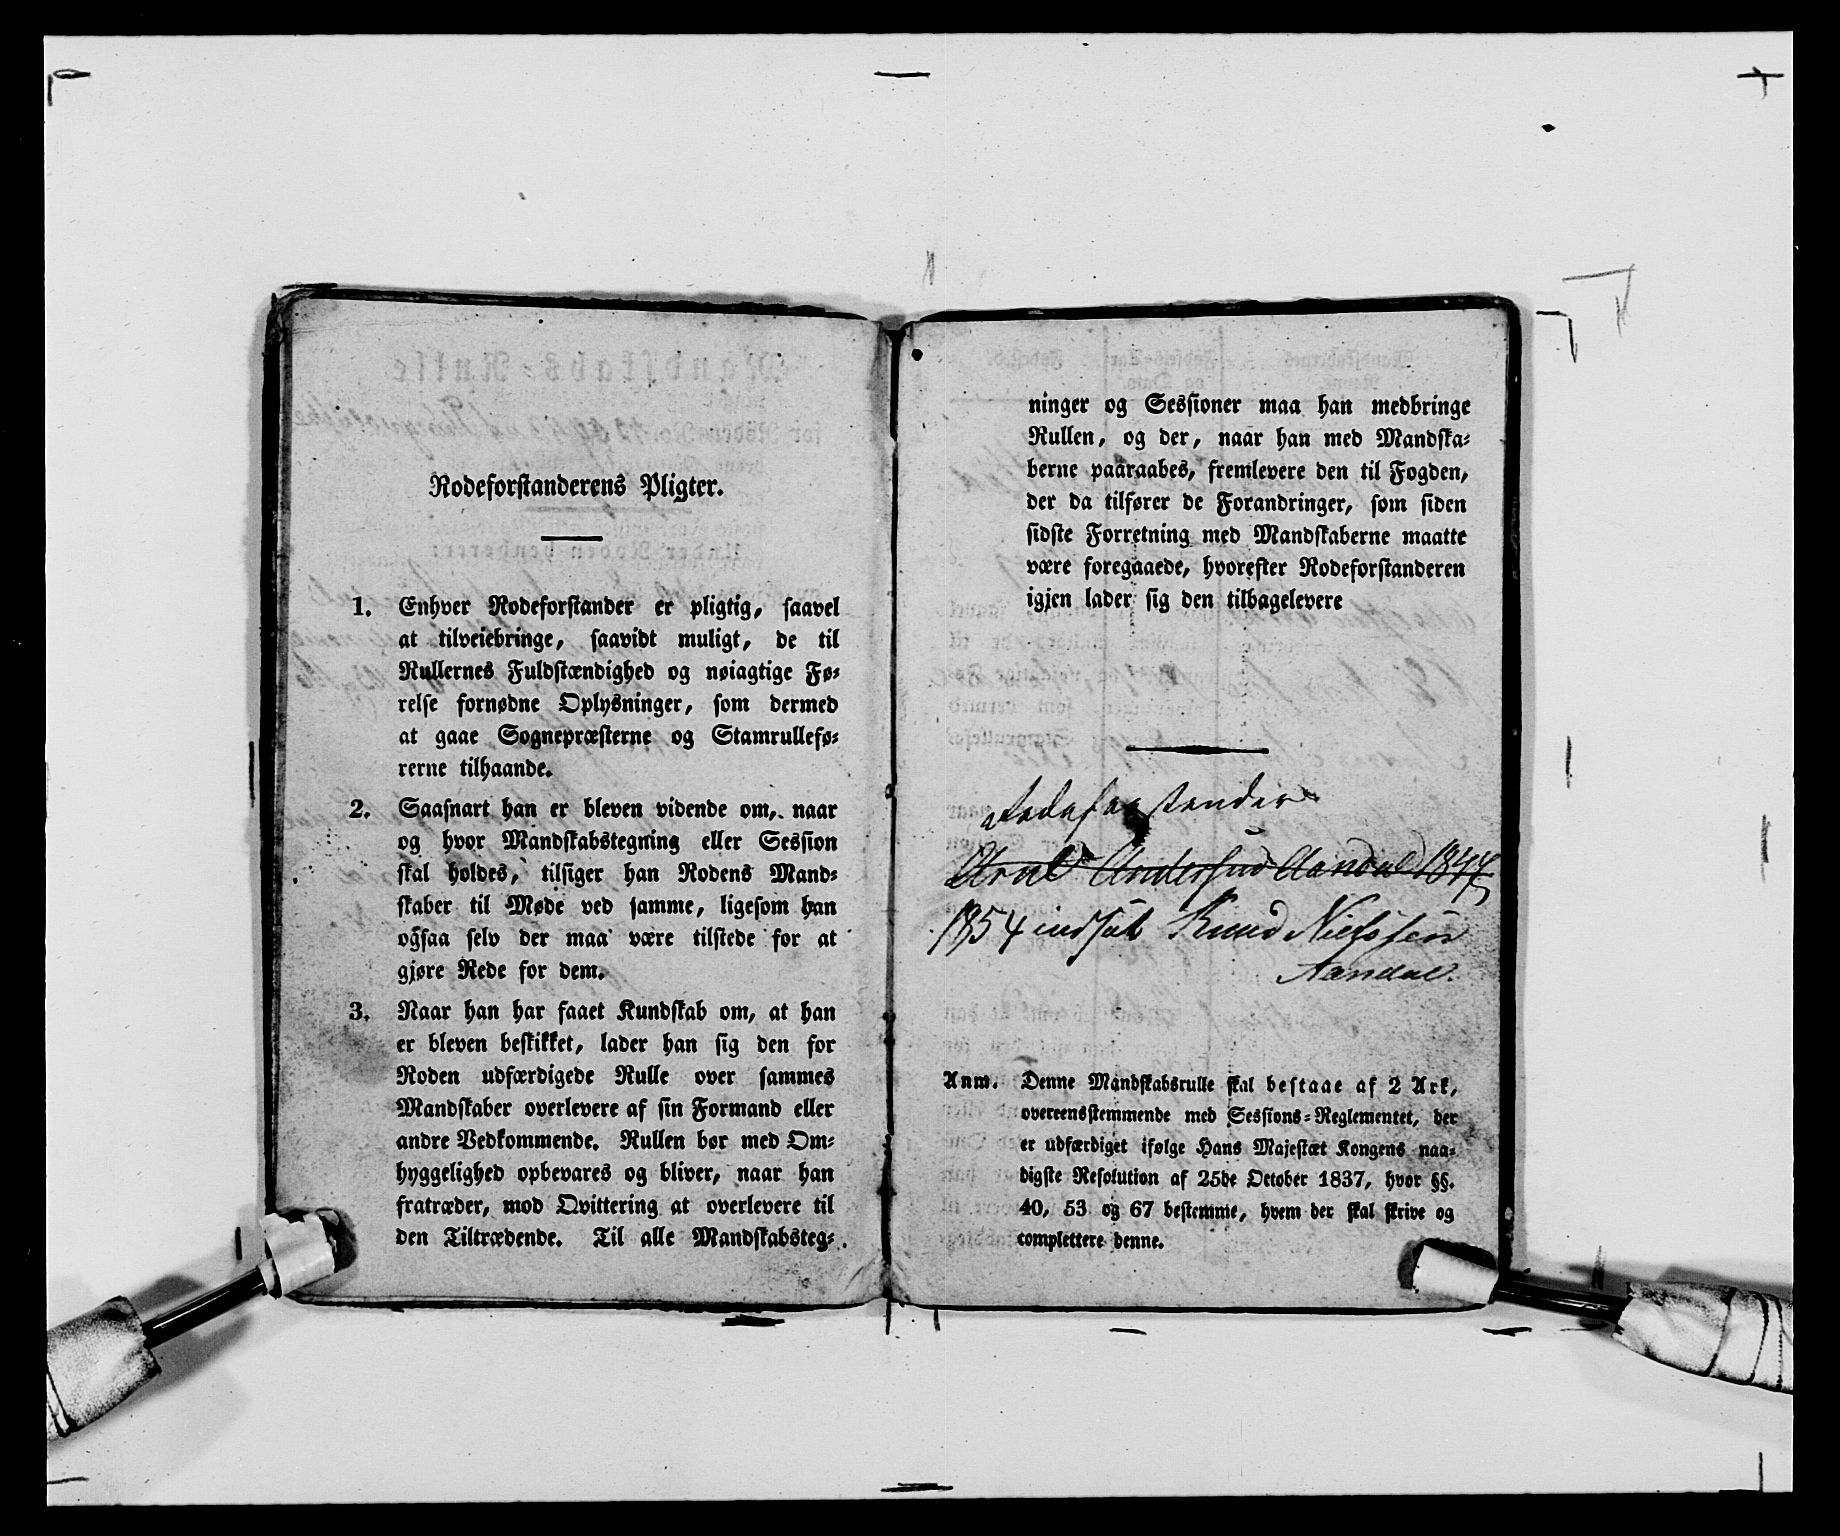 Rodeforstanderens Pligter.
1. Enhver Rodeforstander er pligtig, saavel
at tilveiebringe, saavidt muligt, de til
Rullernes Fuldstændighed og nøiagtige Fø-
relse fornødne Oplysninger, som dermed
at gaae Sognepræsterne og Stamrullefø-
rerne tilhaande.
2. Saasnart han er bleven vidende om, naar
og hvor Mandskabstegning eller Session
skal holdes, tilsiger han Rodens Mand-
skaber til Møde ved samme, ligesom han
ogsaa selv der maa være tilstede for at
gjøre Rede for dem.
3. Naar han har faaet Kundskab om, at han
er bleven beskikket, lader han sig den for
Roden udfærdigede Rulle over sammes
Mandskaber overlevere af sin Formand eller
andre Vedkommende. Rullen bør med Om-
hyggelighed opbevares og bliver, naar han
fratræder, mod Qvittering at overlevere til
den Tiltrædende. Til alle Mandskabsteg-
ninger og Sessioner maa han medbringe
Rullen, og der, naar han med Mandska-
berne paaraabes, fremlevere den til Fogden,
der da tilfører de Forandringer, som siden
sidste Forretning med Mandskaberne maatte
være foregaaede, hvorefter Rodeforstanderen
igjen lader sig den tilbagelevere
Rodeforstander
Andersen Aandal 1844
1854 indsat Knud Nielssen
Aandal.
Anm. Denne Mandskabsrulle skal bestaae af 2 Ark,
overensstemmende med Sessions-Reglementet, der
er udfærdiget ifølge Hans Majestæt Kongens naa-
digste Resolution af 25de October 1837, hvor §§.
40, 53 og 67 bestemme, hvem der skal skrive og
complettere denne.